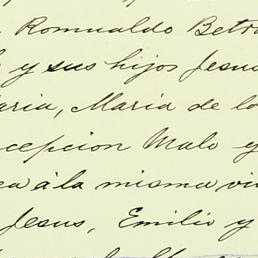 Romualdo Betr
y sus hijos Jesus
aria, Maria de lo
cepcion Malo y
a á la misma vi
Jesus, Emilio y